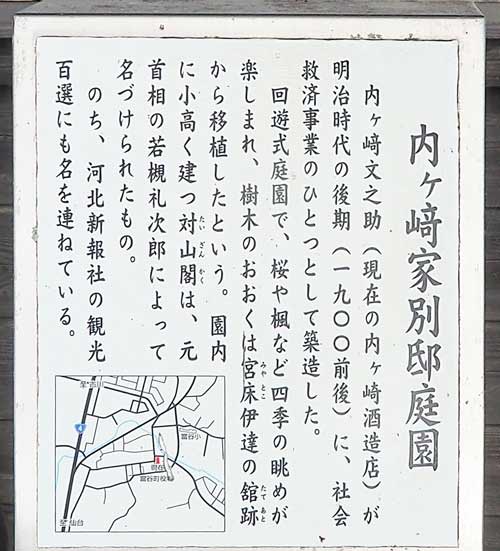 内ヶ﨑家別邸庭園
内ヶ﨑文之助（現在の内ヶ崎酒造店）が
明治時代の後期（一九〇〇前後）に、社会
救済事業のひとつとして築造した。
回遊式庭園で、桜や楓など四季の眺めが
楽しまれ、樹木のおおくは宮床伊達の舘跡
みやとこ
たてあと
から移植したという。園内
に小高く建つ対山閣は、元
たいざんかく
首相の若槻礼次郎によって
名づけられたもの。
のち、河北新報社の観光
百選にも名を連ねている。
至古川
4
富谷小
現在
富谷町役場
至仙台